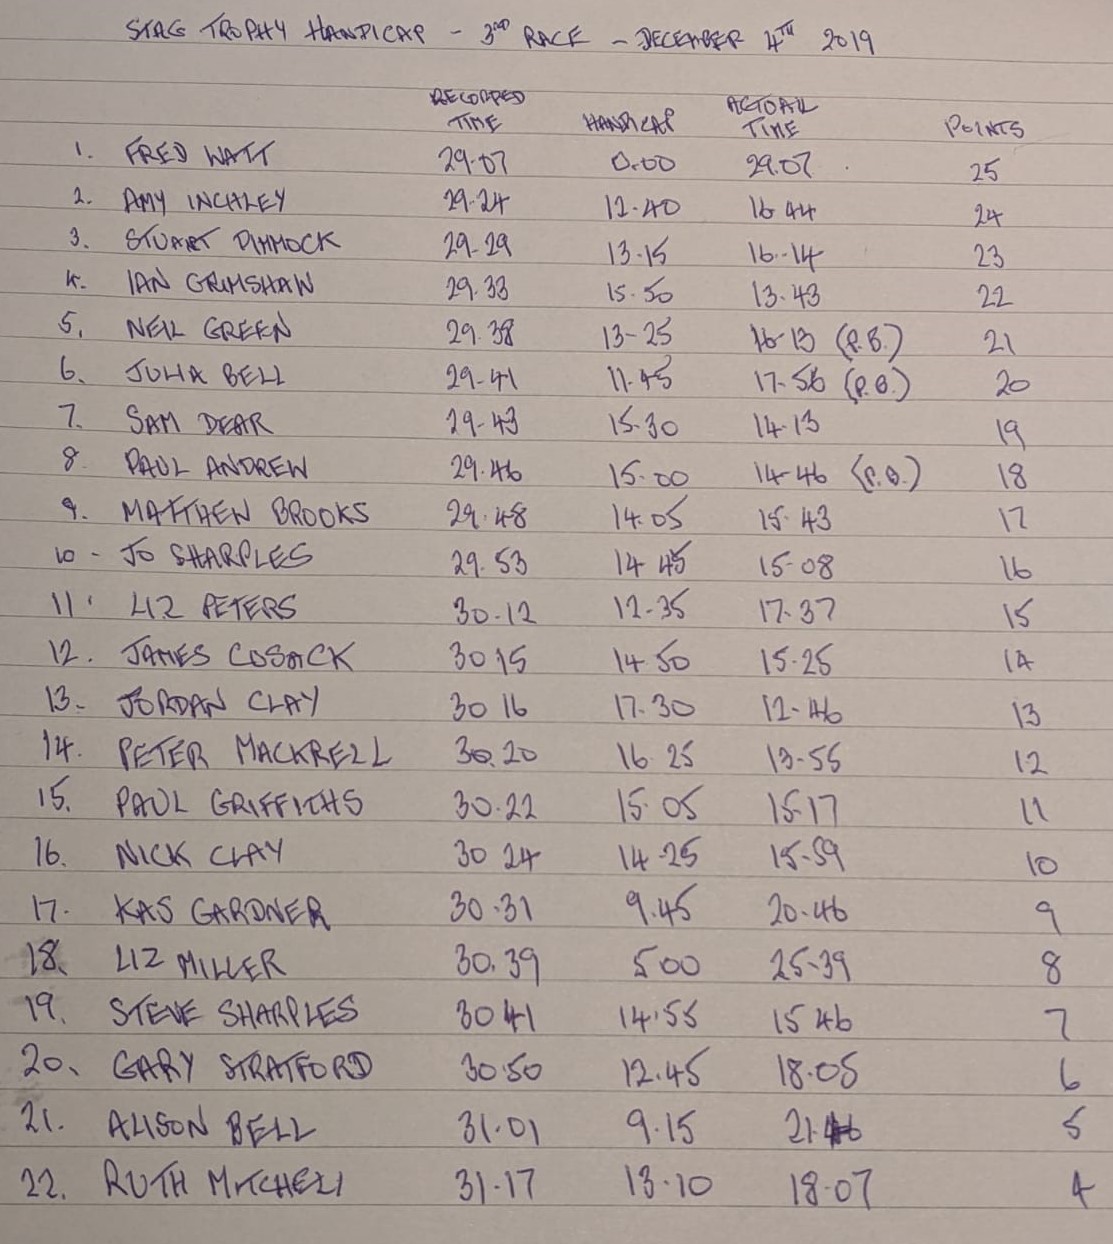 STAG TROPHY HANDICAP - 3RD RACE - DECEMBER 4TH 2019
RECORDED TIME HANDICAP ACTUAL TIME POINTS
1. FRED WATT 29.07 0.00 29.07 25
2. AMY INCHLEY 29.24 12.40 16 44 24
3. STUART PIMMOCK 29-29 13.15 16.-14 23
4. IAN GRIMSHAW 29.33 15.50 13.43 22
5. NEIL GREEN 29.38 13-25 16-13 (P.B.) 21
6. JULIA BELL 29-41 11.45 17-56 (P.B.) 20
7. SAM DEAR 29-43 15.30 14-13 19
8. PAUL ANDREW 29.46 15.00 14-46 (P.B.) 18
9. MATTHEW BROOKS 29.48 14.05 15.43 17
10 - JO SHARPLES 29.53 14 45 15-08 16
11. LIZ PETERS 30.12 12-35 17.37 15
12. JAMES COSACK 30 15 14 50 15.25 14
13- JORDAN CLAY 30 16 17.30 12-46 13
14. PETER MACKRELL 30.20 16 25 13-55 12
15. PAUL GRIFFITHS 30.22 15.05 15.17 11
16. NICK CLAY 30 24 14.25 15-59 10
17. KAS GARDNER 30.31 9.45 20.46 9
18. LIZ MILLER 30.39 5 00 25-39 8
19. STEVE SHARPLES 30 41 14.55 15 46 7
20. GARY STRATFORD 30.50 12.45 18.05 6
21. ALISON BELL 31.01 9.15 21.46 5
22. RUTH MITCHELL 31.17 13.10 18.07 4